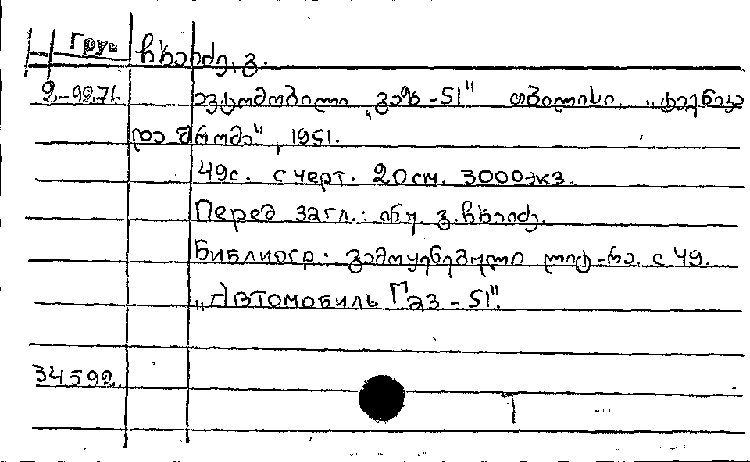 Груз ჩხაიძე, გ.
9-9271 ავტომობილი „გაზ-51" თბილისი, „ტექნიკა
და შრომა", 1951.
49с. с черт. 20см. 3000экз.
Перед загл.: ინჟ. გ. ჩხაიძე.
Библиогр.: გამოყენებული ლიტ-რა. с 49.
„Автомобиль Газ-51".
34592